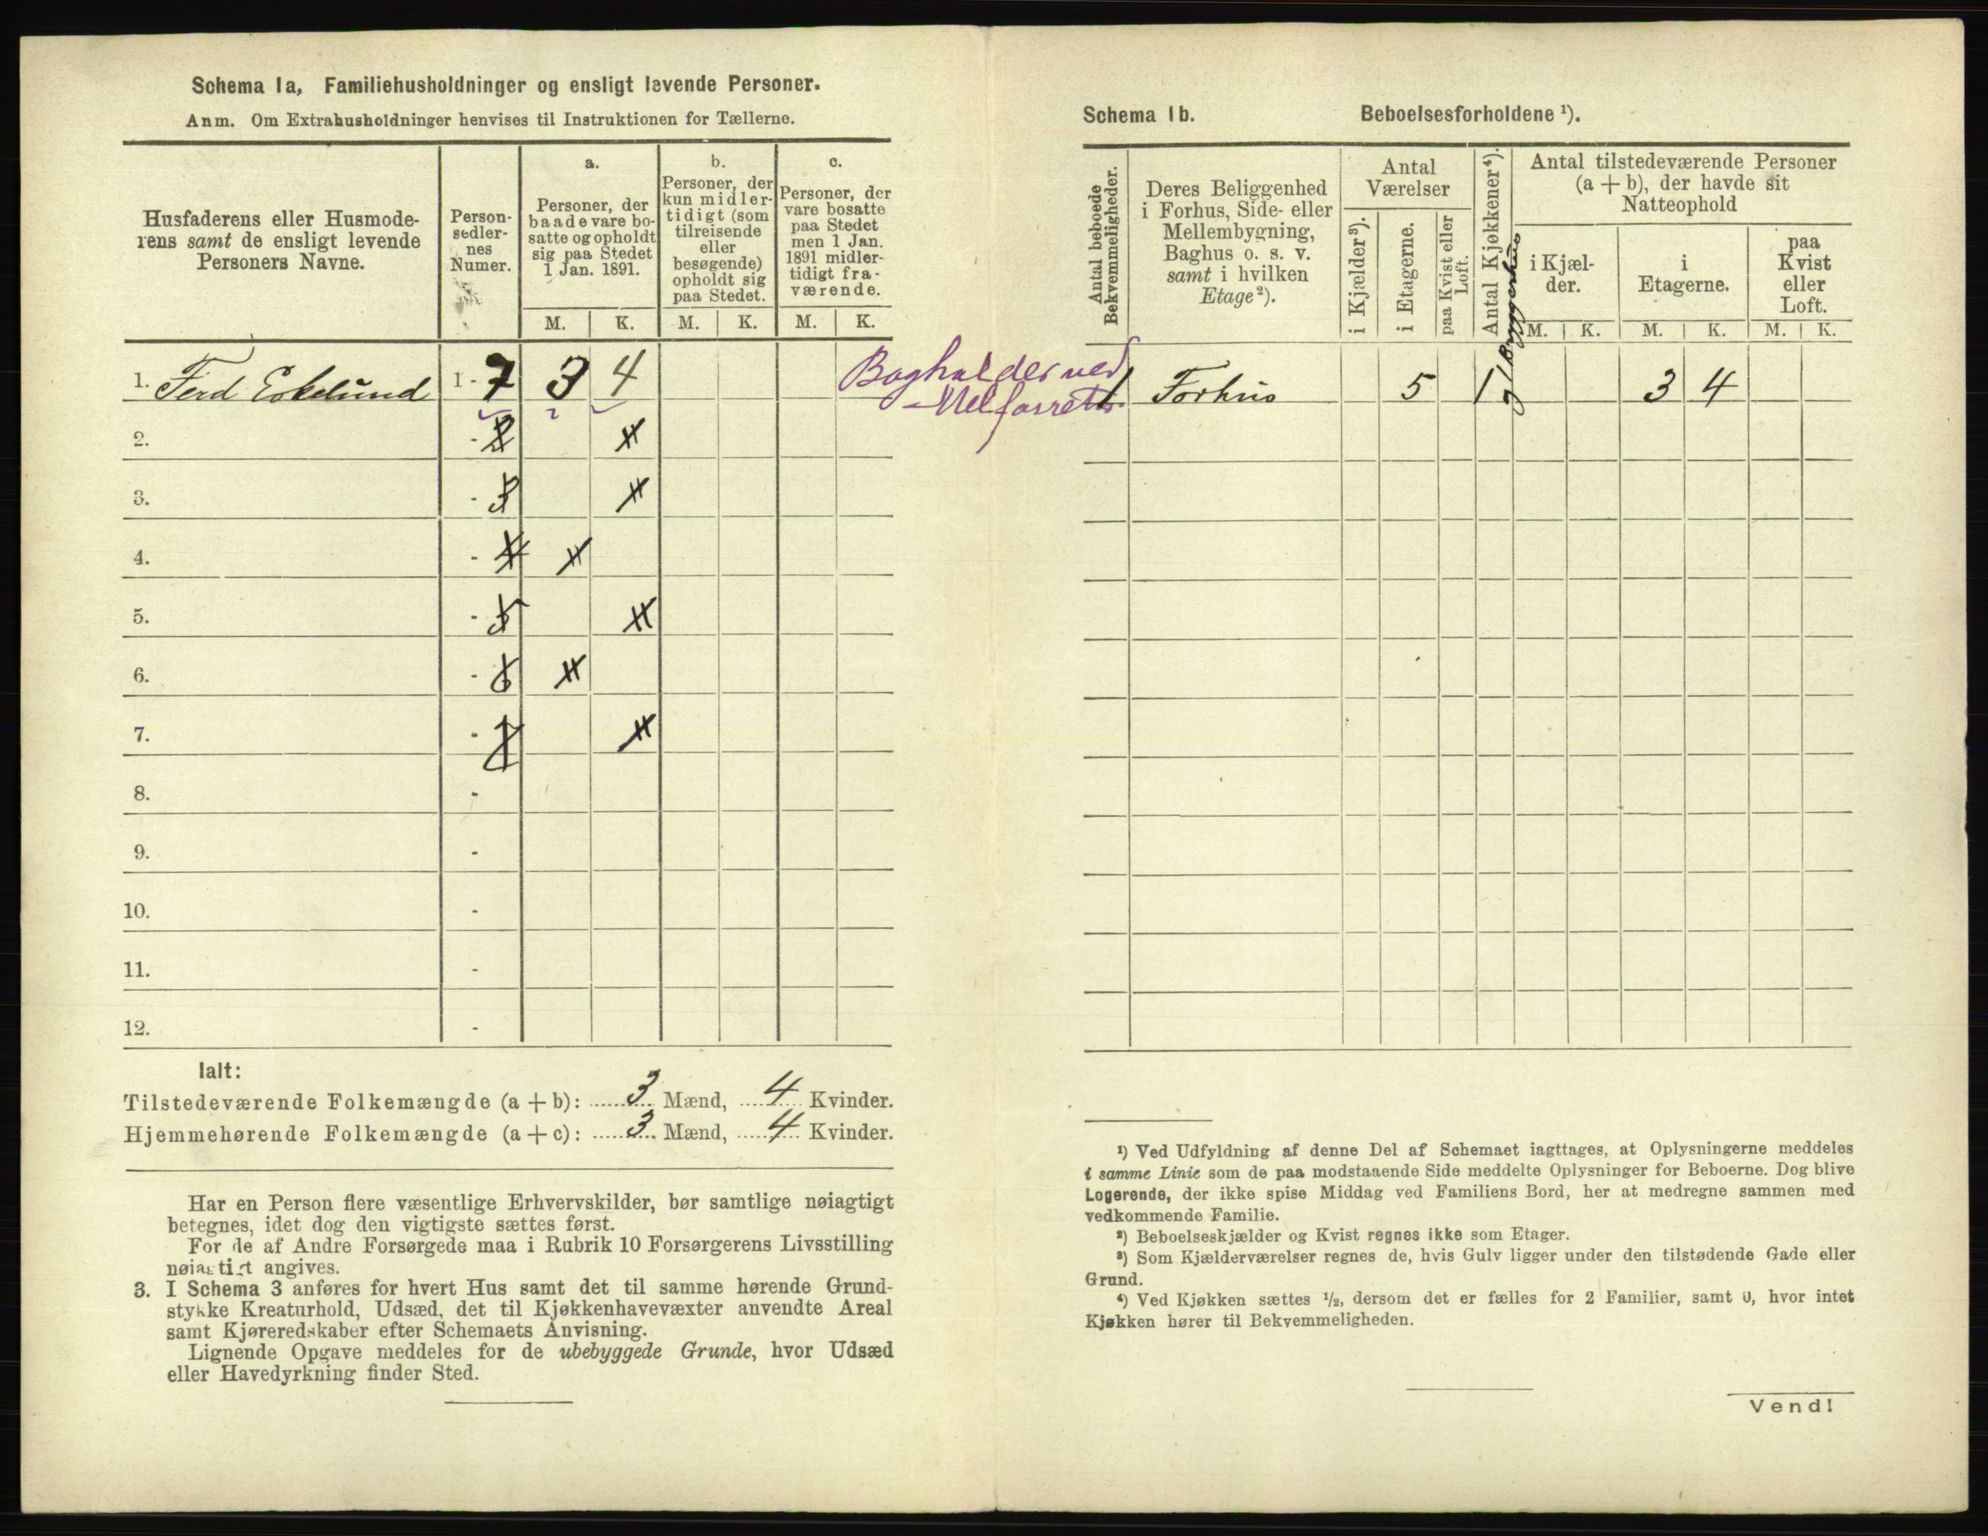 Schema 1a, Familiehusholdninger og ensligt levende Personer.
Anm. Om Extrahusholdninger henvises til Instruktionen for Tællerne.
Husfaderens eller Husmode-
rens samt de ensligt levende
Personers Navne.
Person-
sedler-
nes
Numer.
a.
Personer, der
baade vare bo-
satte og opholdt
sig paa Stedet
1 Jan. 1891.
b.
Personer, der
kun midler-
tidigt (som
tilreisende
eller
besøgende)
opholdt sig
paa Stedet.
c.
Personer, der
vare bosatte
paa Stedet
men 1 Jan.
1891 midler-
tidigt fra-
værende.
M. K. M. K. M. K.
1. Ferd Eskelund 1 - 7 3 4
Bogholder ved
2. - 2
3. - 3
4. - 4
5. - 5
6. - 6
7. - 7
8. -
9. -
10. -
11. -
12. -
Ialt:
Tilstedeværende Folkemængde (a + b): 3 Mænd, 4 Kvinder.
Hjemmehørende Folkemængde (a + c): 3 Mænd, 4 Kvinder.
Har en Person flere væsentlige Erhvervskilder, bør samtlige nøiagtigt
betegnes, idet dog den vigtigste sættes først.
For de af Andre Forsørgede maa i Rubrik 10 Forsørgerens Livsstilling
nøiagtigt angives.
3. I Schema 3 anføres for hvert Hus samt det til samme hørende Grund-
stykke Kreaturhold, Udsæd, det til Kjøkkenhavevæxter anvendte Areal
samt Kjøreredskaber efter Schemaets Anvisning.
Lignende Opgave meddeles for de ubebyggede Grunde, hvor Udsæd
eller Havedyrkning finder Sted.
Schema 1b. Beboelsesforholdene ¹).
Antal beboede
Bekvemmeligheder.
Deres Beliggenhed
i Forhus, Side- eller
Mellembygning,
Baghus o. s. v.
samt i hvilken
Etage²).
Antal
Værelser
i Kjælder³).
i Etagerne.
paa Kvist eller
Loft.
Antal Kjøkkener⁴).
Antal tilstedeværende Personer
(a + b), der havde sit
Natteophold
i Kjæl-
der.
i
Etagerne.
paa
Kvist
eller
Loft.
M. K. M. K. M. K.
1 Forhus 5 1 3 4
g 1 Bryggerhus
¹) Ved Udfyldning af denne Del af Schemaet iagttages, at Oplysningerne meddeles
i samme Linie som de paa modstaaende Side meddelte Oplysninger for Beboerne. Dog blive
Logerende, der ikke spise Middag ved Familiens Bord, her at medregne sammen med
vedkommende Familie.
²) Beboelseskjælder og Kvist regnes ikke som Etager.
³) Som Kjælderværelser regnes de, hvis Gulv ligger under den tilstødende Gade eller
Grund.
⁴) Ved Kjøkken sættes ½, dersom det er fælles for 2 Familier, samt 0, hvor intet
Kjøkken hører til Bekvemmeligheden.
Vend!